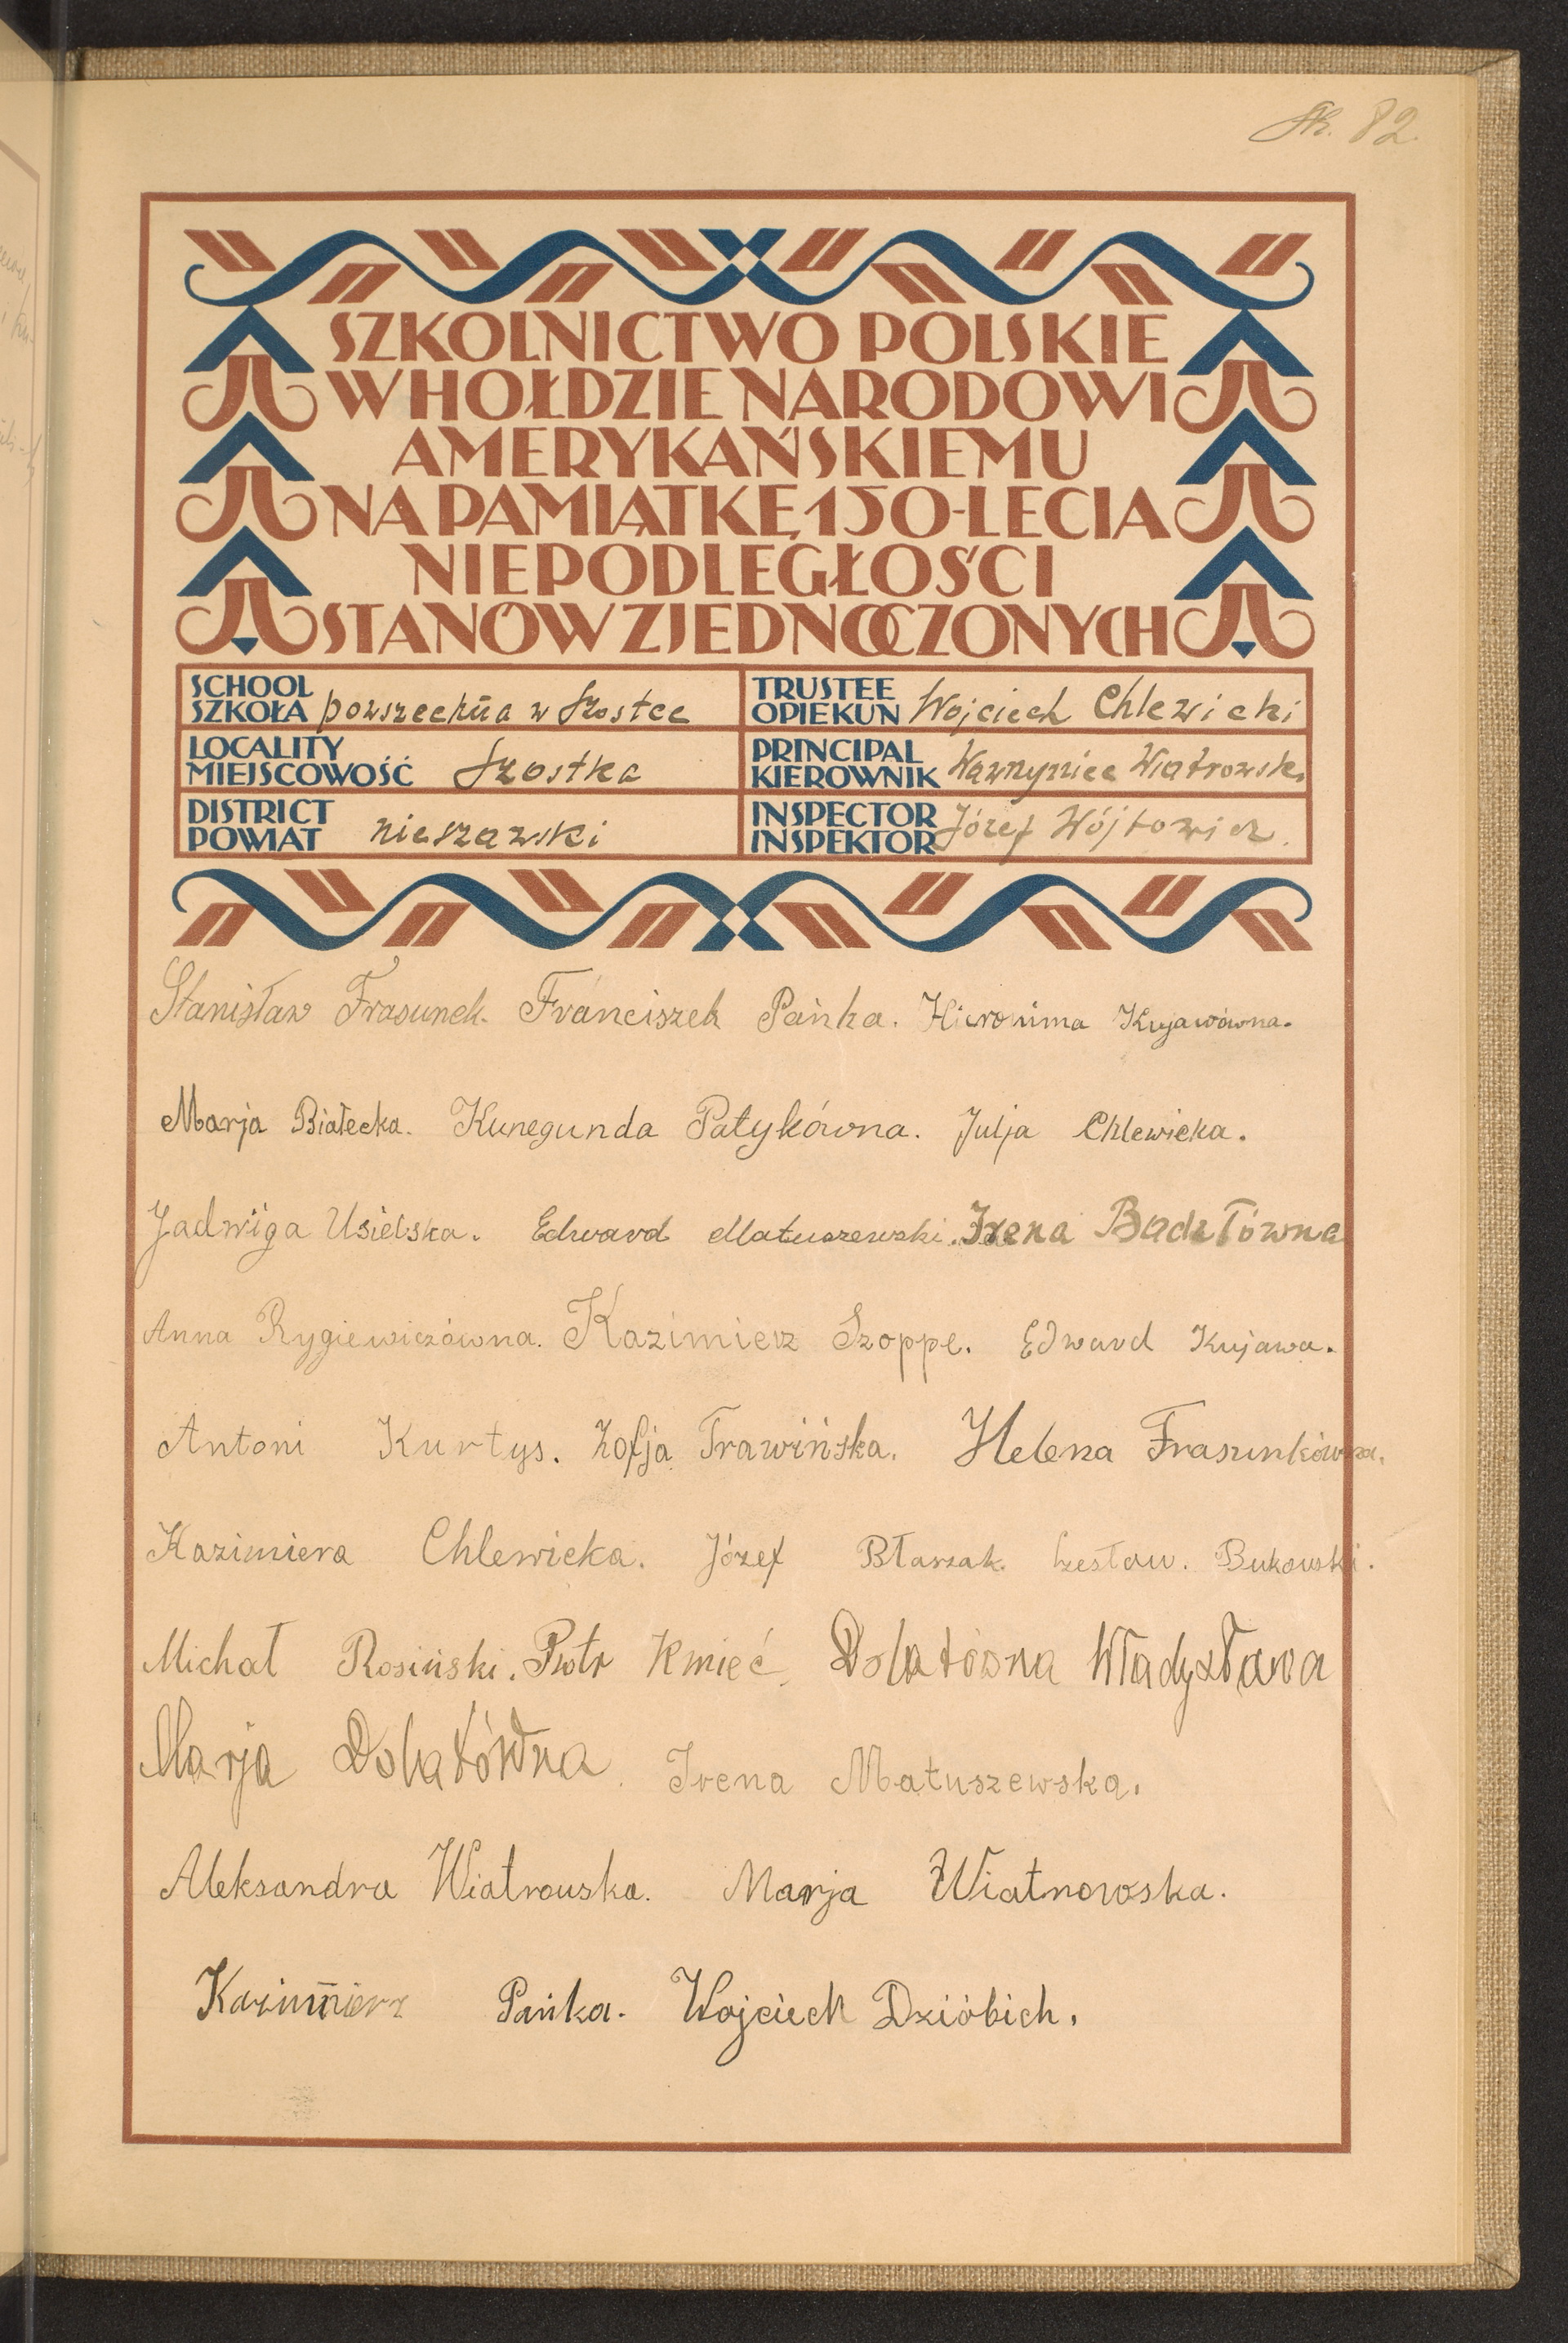 Str. 82.
SZKOLNICTWO POLSKIE
W HOŁDZIE NARODOWI
AMERYKAŃSKIEMU
NA PAMIĄTKĘ 150-LECIA
NIEPODLEGŁOŚCI
STANÓW ZJEDNOCZONYCH
SCHOOL
SZKOŁA powszechna w Szostce
TRUSTEE
OPIEKUN Wojciech Chlewicki
LOCALITY
MIEJSCOWOŚĆ Szostka
PRINCIPAL
KIEROWNIK Wawrzyniec Wiatrowski
DISTRICT
POWIAT nieszawski
INSPECTOR
INSPEKTOR Józef Wójtowicz.
Stanisław Frasunek. Franciszek Pańka. Hieronima Kujawówna.
Marja Białecka. Kunegunda Patykówna. Julja Chlewicka.
Jadwiga Usielska. Edward Matuszewski. Irena Badełówna
Anna Rygiewiczówna. Kazimierz Szoppe. Edward Kujawa.
Antoni Kurtys. Zofja Trawińska. Helena Frasunkówna.
Kazimiera Chlewicka. Józef Błaszak. Czesław. Bukowski.
Michał Rosiński. Piotr Kmieć. Dolatówna Władysława
Marja Dolatówna. Irena Matuszewska.
Aleksandra Wiatrowska. Marja Wiatrowska.
Kazimierz Pańka. Wojciech Dzióbich.